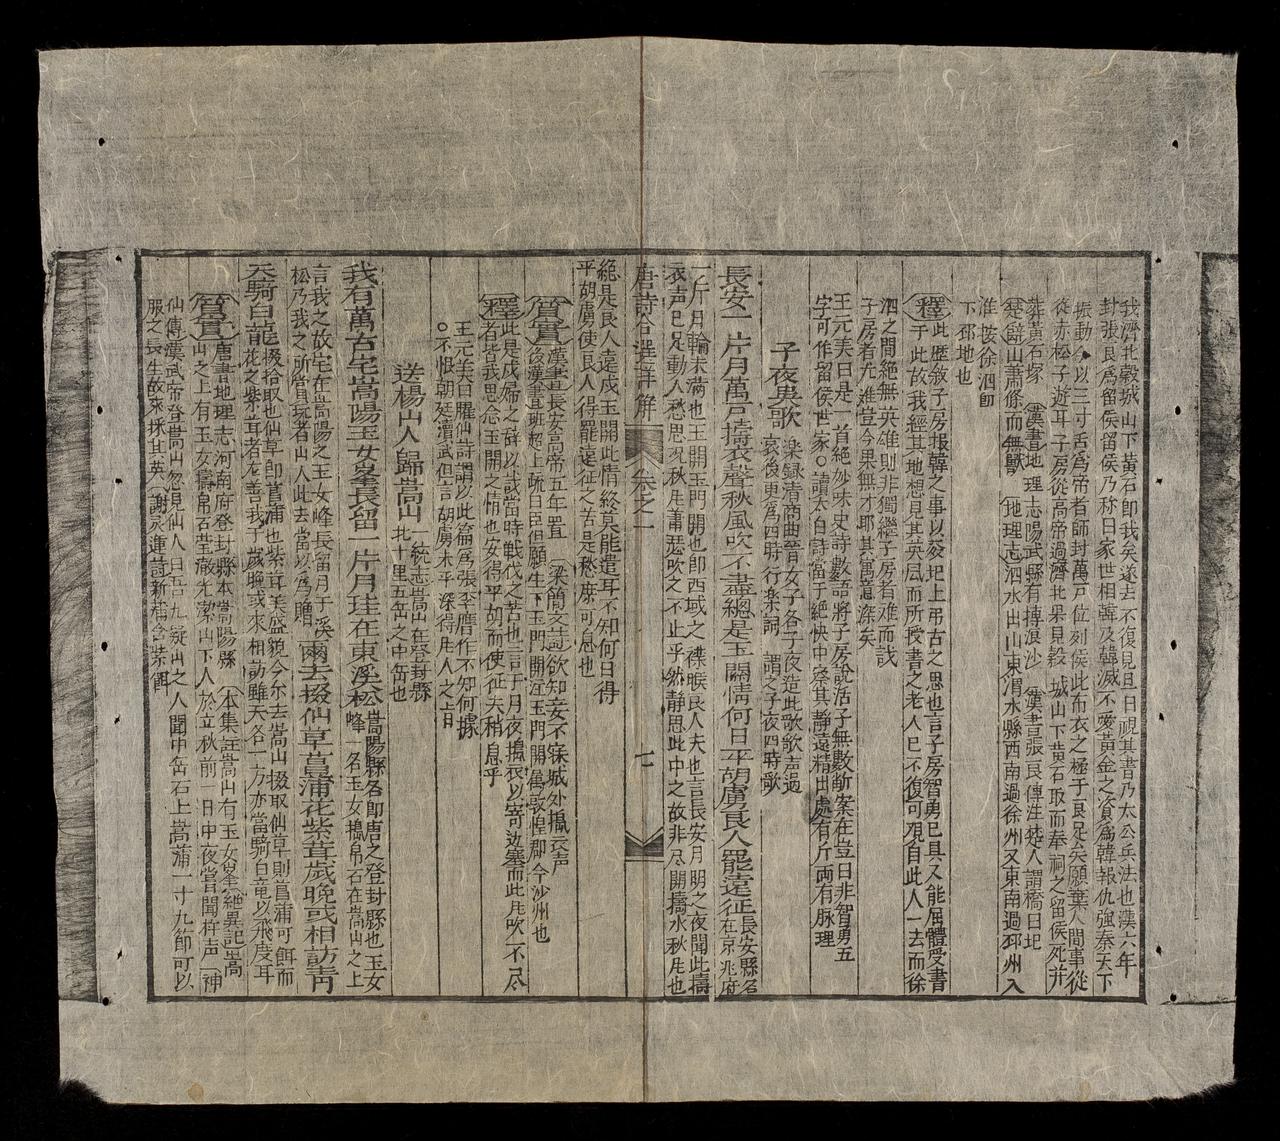 我濟北穀城山下黃石即我矣遂去不復見旦日視其書乃太公兵法也漢六年
封張良為留侯留侯乃称曰家世相韓及韓滅不愛黃金之資為韓報仇強秦天下
振動今以三寸舌為帝者師封萬戸位列侯此布衣之極于良足矣願棄人間事從
從赤松子遊耳子房從高帝過濟北果見穀城山下黄石取而奉祠之留侯死并
葬黃石塚 漢書地理志陽武縣有搏浪沙 漢書張良傳注楚人謂橋曰圯
楚辭山蕭條而無獸 地理志泗水出山東 渭水縣西南過徐州又東南過邳州入
淮 按徐泗即
下邳地也
釋 此歴敘子房報韓之事以致圯上吊古之思也言子房智勇已具又能屈體受書
于此故我經其地想見其英風而所授書之老人已不復可覌自此人一去而徐
泗之間絕無英雄則非獨繼子房者难而我
子房者尤难豈今果無才耶其寓意深矣
王元美曰是一首絕妙咏史詩數語將子房說活子無數斷案在豈曰非智勇五
字可作留侯世家○讀太白詩當于絕快中察其靜遠精出處有斤兩有脉理
子夜吳歌 楽録清商曲晉女子名子夜造此歌歌声過
哀後更為四時行楽詞謂之子夜四時歌
長安一片月萬戸擣衣聲秋風吹不盡總是玉關情何日平胡虜良人罷遠征 長安縣名
在京兆府
一片月輪未滿也玉開玉門開也即西域之襟喉良人夫也言長安月明之夜聞此擣
衣声已足動人愁思况秋風蕭瑟吹之不止乎然靜思此中之故非為開擣水秋風也
唐詩合選詳解 卷之一 七
絕是良人遠戍玉開開此情終莫能遣耳不知何日得
平胡虜使良人得罷遠征之苦是愁庶可息也
質實 漢書長安高帝五年置 梁簡文詩欲知妾不寐城外搗衣声
後漢書班超上疏曰臣但願生入玉門開 注玉門開属敦惶郡今沙州也
釋 此是戍婦之辞以諷當時戦伐之苦也言于月夜搗衣以寄边塞而此風吹不尽
者皆我思念玉開之情也安得平胡而使征夫稍息乎
王元美曰臞仙詩謂以此備為張李贋作不知何據
○不恨朝廷瀆武但言胡虜未平深得風人之旨
送楊山人歸嵩山 一統志嵩山在登封縣
北十里五岳之中岳也
我有萬古宅嵩陽玉女峯長留一片月挂在東溪松 嵩陽縣名即唐之登封縣也玉女
峰一名玉女搗帛石在嵩山之上
言我之故宅在嵩陽之玉女峰長留月于溪
松乃我之所賞玩者山人此去當以為贈 爾去掇仙草菖蒲花紫茸歲晚或相訪靑
天騎白龍 掇拾取也仙草即菖蒲也紫茸美盛貌今尔去嵩山掇取仙草則菖蒲可餌而
花之紫茸者在善我于歲晚或來相訪雖天各一方亦當騎白竜以飛度耳
質實 唐書地理志河南府登封縣本嵩陽縣 本集註嵩山有玉女峯 絕異記嵩
山之上有玉女擣帛石莹徹光潔山下人於立秋前一日中夜嘗聞杵声 神
仙傳漢武帝登嵩山忽見仙人曰吾九疑山之人聞中岳石上菖蒲一寸九節可以
服之長生故來採其英 謝灵運詩新蒲含紫茸